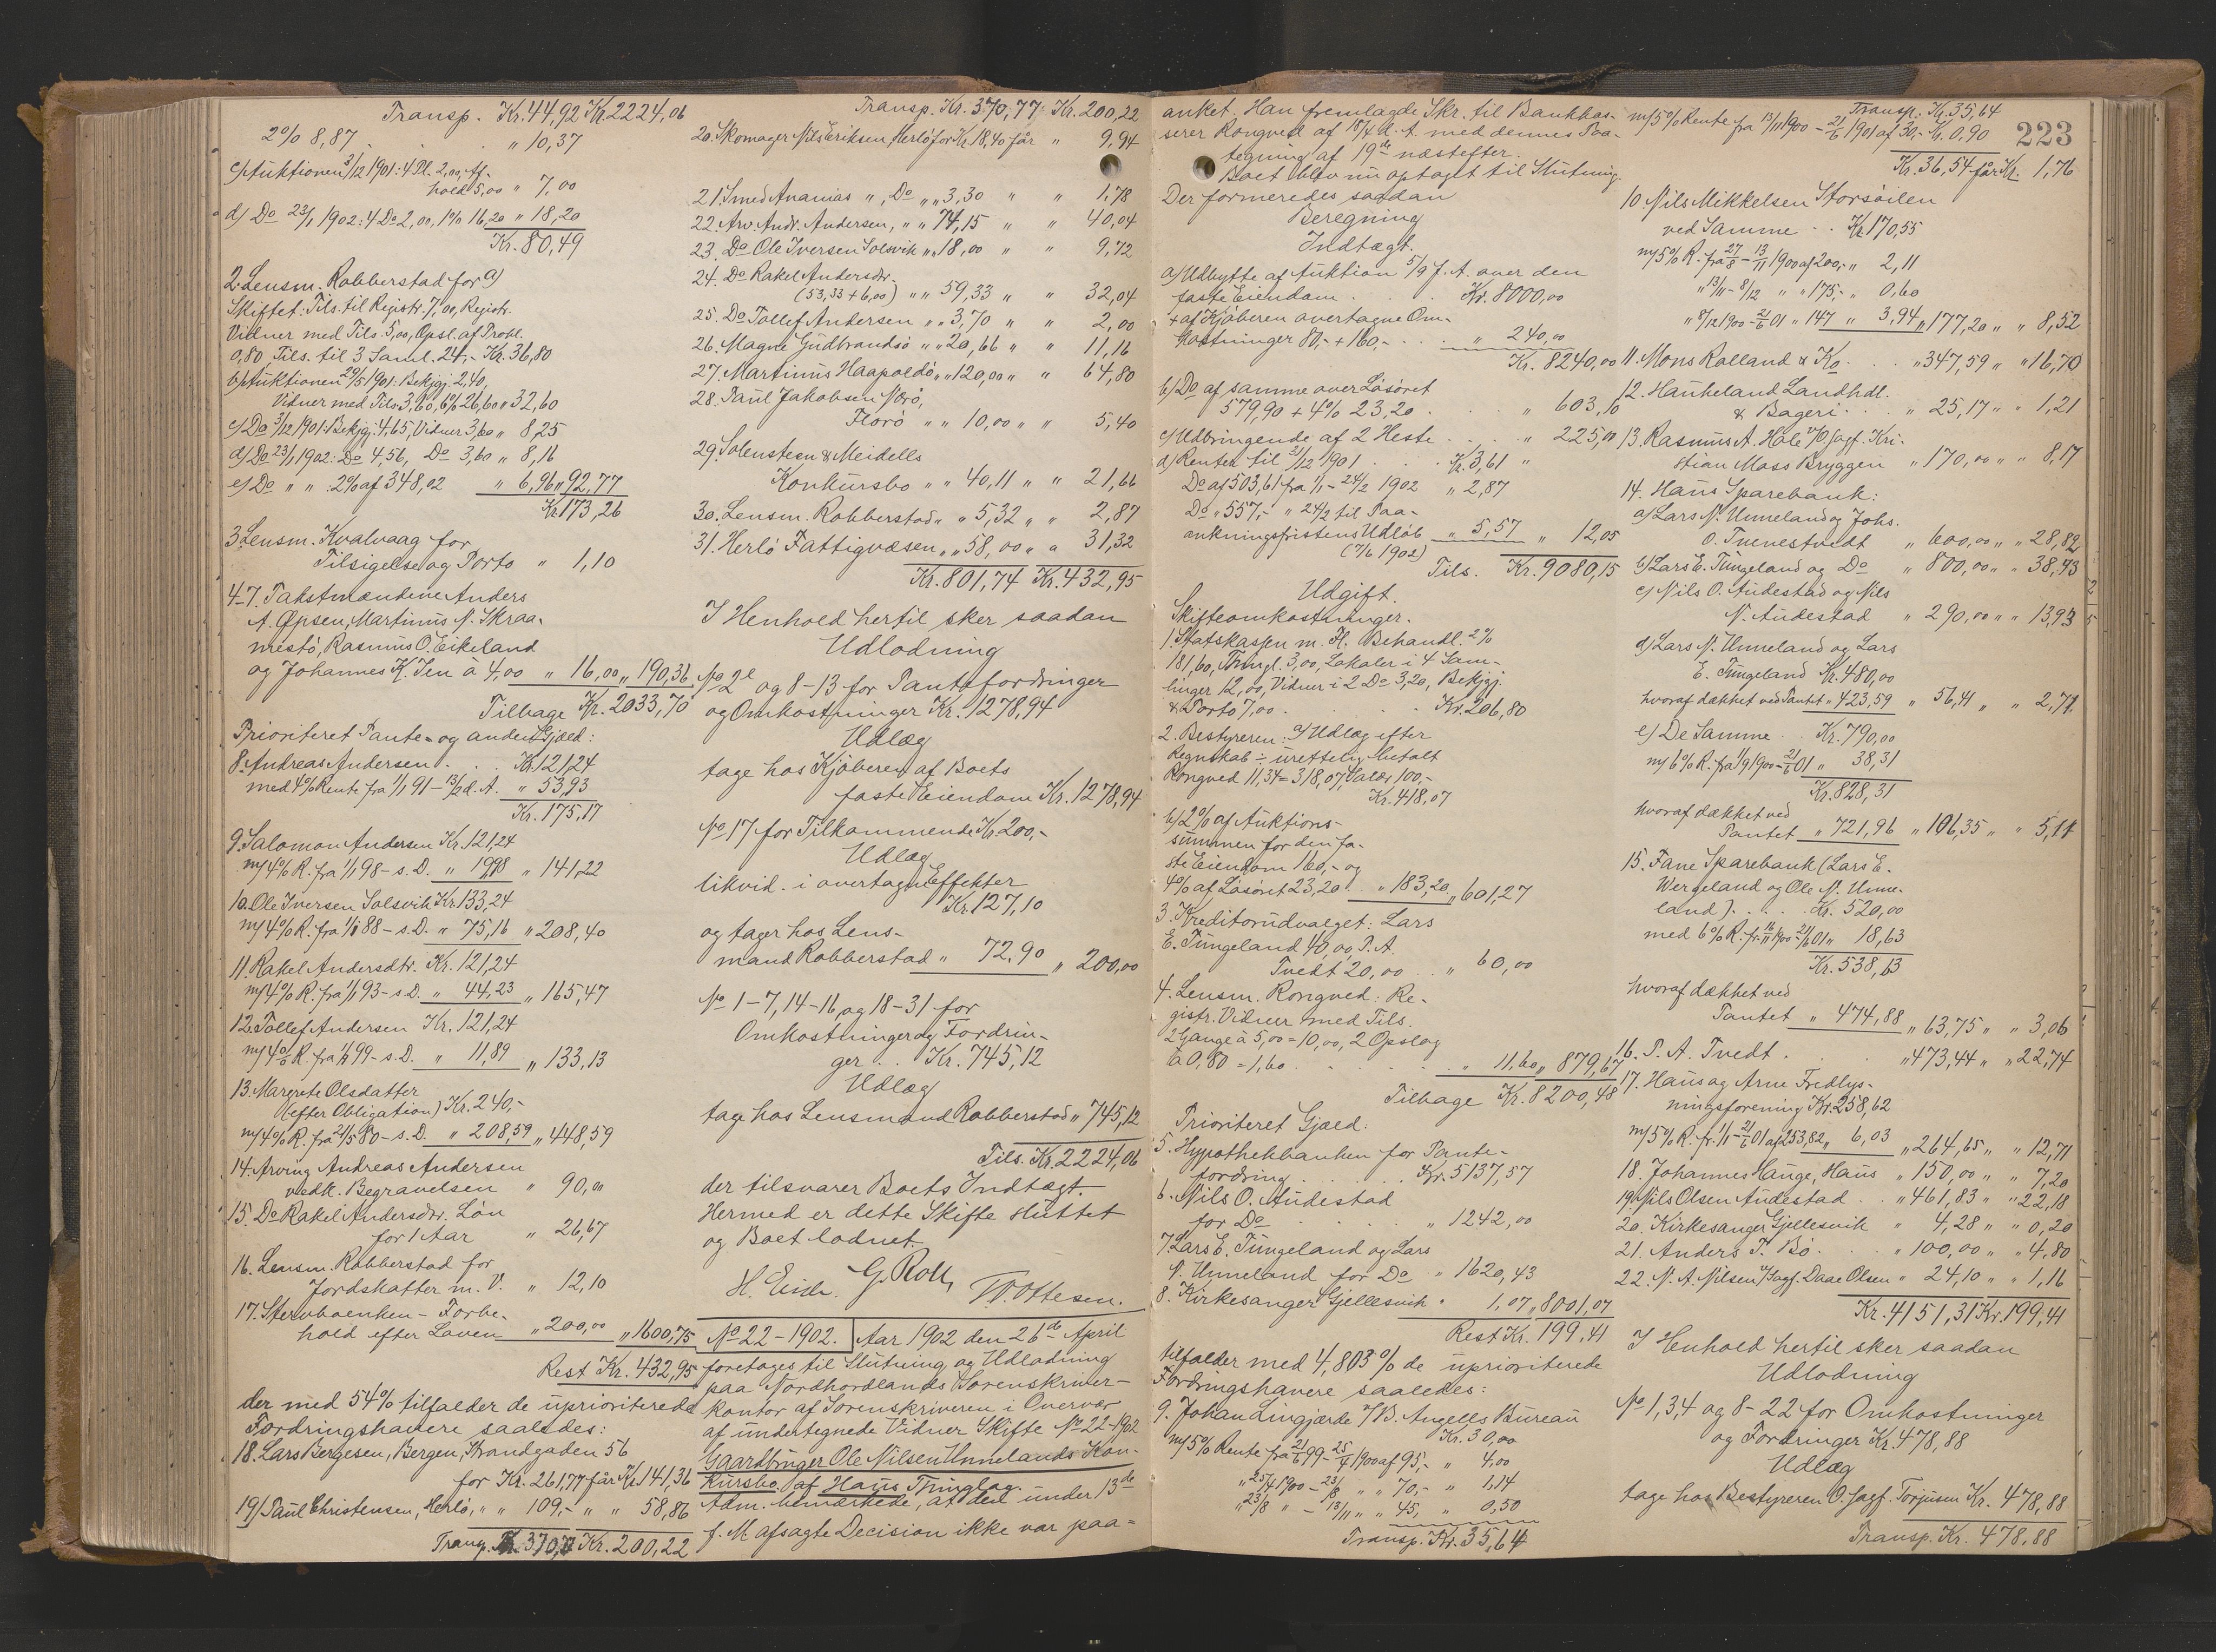 Transp. Kr. 44,92 Kr. 2224,06
2% 8,87 . . . " 10,37
c/ Auktionen 3/12 1901: 4 Pl. 2,00, Af-
hold 5,00 " 7,00
d/ Do 23/1 1902: 4 Do 2,00, 1% 16,20 " 18,20
Kr. 80,49
2. Lensm. Robberstad for a/
Skiftet: Tils. til Registr. 7,00, Registr.
Vidner med Tils. 5,00, Opsl. af Probl.
0,80, Tils. til 3 Saml. 24,- Kr. 36,80
b/ Auktionen 29/5 1901: Bekjgj. 2,40,
Vidner med Tils. 3,60, 6% 26,60 " 32,60
c/ Do 3/12 1901: Bekjgj. 4,65, Vidner 3,60 " 8,25
d/ Do 23/1 1902: Do 4,56, Do 3,60 " 8,16
e/ Do " " 2% af 348,02 " 6,96 " 92,77
Kr. 173,26
3. Lensm. Kvalvaag for
Tilsigelse og Porto " 1,10
4-7. Takstmændene Anders
A. Øpsen, Martinus N. Skraa-
mestø, Rasmus O. Eikeland
og Johannes K. Jen à 4,00 " 16,00 " 190,36
Tilbage Kr. 2033,70
Prioriteret Pante- og anden Gjæld:
8. Andreas Andersen . . Kr. 121,24
med 4% Rente fra 1/1 91 - 13/2 d. A. " 53,93
Kr. 175,17
9. Salomon Andersen Kr. 121,24
m/ 4% R. fra 1/1 98 - s. D. " 19,98 " 141,22
10. Ole Iversen Solsvik Kr. 133,24
m/ 4% R. fra 1/1 88 - s. D. " 75,16 " 208,40
11. Rakel Andersdtr. Kr. 121,24
m/ 4% R. fra 1/1 93 - s. D. " 44,23 " 165,47
12. Tollef Andersen Kr. 121,24
m/ 4% R. fra 1/9 99 - s. D. " 11,89 " 133,13
13. Margrete Olsdatter
(efter Obligation) Kr. 240,-
m/ 4% R. fra 21/5 80 - s. D. " 208,59 " 448,59
14. Arving Andreas Andersen
vedk. Begravelsen " 90,00
15. Do Rakel Andersdtr. Løn
for 1 Aar " 26,67
16. Lensm. Robberstad for
Jordskatter m. V. " 12,10
17. Stervboenken - Forbe-
hold efter Loven " 200,00 " 1600,75
Rest Kr. 432,95
der med 54% tilfalder de uprioriterede
Fordringshavere saaledes:
18. Lars Børgesen, Bergen, Strandgaden 56
for Kr. 261,77 får Kr. 141,36
19/ Paul Christensen, Herlø, " " 109,- " " 58,86
Transp. Kr. 370,77 Kr. 200,22
Transp. Kr. 370,77 Kr. 200,22
20. Skomager Nils Eriksen, Herlø for Kr. 18,40 får " 9,94
21. Smed Ananias ", Do " " 3,30 " " 1,78
22. Arv. Andr. Andersen, " " 74,15 " " 40,04
23. Do Ole Iversen Solsvik " " 18,00 " " 9,72
24. Do Rakel Andersdtr.
(53,33 + 6,00) " " 59,33 " " 32,04
25. Do Tollef Andersen " " 3,70 " " 2,00
26. Magne Gudbrandsø " " 20,66 " " 11,16
27. Martinus Haapoldø " " 120,00 " " 64,80
28. Paul Jakobsen Nærø,
Florø " " 10,00 " " 5,40
29. Solensteen & Meidells
Konkursbo " " 40,11 " " 21,66
30. Lensm. Robberstad " " 5,32 " " 2,87
31. Herlø Fattigvæsen " " 58,00 " " 31,32
Kr. 801,74 Kr. 432,95
I Henhold hertil sker saadan
Udlodning
No 2e og 8-13 for Pantefordringer
og Omkostninger Kr. 1278,94
Udlæg
tage hos Kjøberen af Boets
faste Eiendom Kr. 1278,94
No 17 for Tilkommende Kr. 200,-
Udlæg
likvid. i overtagne Effekter
Kr. 127,10
og tager hos Lens-
mand Robberstad " 72,90 " 200,00
No 1-7, 14-16, og 18-31 for
Omkostninger og Fordrin-
ger . . Kr. 745,12
Udlæg
tage hos Lensmand Robberstad " 745,12
Tils. Kr. 2224,06
der tilsvarer Boets Indtægt.
Hermed er dette Skifte sluttet
og Boet lodnet.
H. Eide. G. Roll, T. Ottesen.
No 22-1902. Aar 1902 den 26de April
foretoges til Slutning og Udlodning
paa Nordhordlands Sorenskriver-
kontor af Sorenskriveren i Overvær
af undertegnede Vidner Skifte No 22-1902
Gaardbruger Ole Nilsen Unnelands Kon-
kursbo af Haus Thinglag.
Adm. bemærkede, at den under 13de
f. M. afsagte Decision ikke var paa-
anket. Han fremlagde Skr. til Bankkas-
serer Rongved af 18/4 d. A. med dennes Paa-
tegning af 19de næstefter.
Boet blev nu optaget til Slutning.
Der formeredes saadan
Beregning
Indtægt.
a/ Udbytte af Auktion 5/9 f. A. over den
faste Eiendom . . . Kr. 8000,00
+ af Kjøberen overtagne Om-
kostninger 80,- + 160,- . . " 240,00
Kr. 8240,00
b/ Do af samme over Løsøret
579,90 + 4% 23,20 . . " 603,10
c/ Udbringende af 2 Heste . . " 225,00
d/ Renter til 31/12 1901 . . Kr. 3,61 "
Do af 503,61 fra 1/1 - 24/2 1902 " 2,87
Do " 557,- " 24/2 til Paa-
ankningsfristens Udløb " 5,57 " 12,05
(7/6 1902)
Tils. Kr. 9080,15
Udgift.
Skifteomkostninger.
1. Statskassen m. Fl. Behandl. 2%
181,60, Thingl. 3,00, Lokaler i 4 Sam-
linger 12,00, Vidner i 2 Do 3,20, Bekjgj.
& Porto 7,00 . . . Kr. 206,80
2. Bestyreren: a/ Udlæg efter
Regnskab ÷ urettelig betalt
Rongved 11,34 = 318,07, Salær 100,-
Kr. 418,07
b/ 2% af Auktions-
summen for den fa-
ste Eiendom 160,- og
4% af Løsøret 23,20 . " 183,20 " 601,27
3. Kreditorudvalget: Lars
E. Tungeland 40,00, P. A.
Tvedt 20,00 . . " 60,00
4. Lensm. Rongved: Re-
gistr. Vidner med Tils.
2 Gange à 5,00 = 10,00, 2 Opslag
à 0,80 = 1,60 . . . " 11,60 " 879,67
Tilbage Kr. 8200,48
Prioriteret Gjæld:
5. Hypothekbanken for Pante-
fordring . . . Kr. 5137,57
6. Nils O. Audestad
for Do . . " 1242,00
7. Lars E. Tungeland og Lars
N. Unneland for Do " 1620,43
8. Kirkesanger Gjellesvik " 1,07 " 8001,07
Rest Kr. 199,41
tilfalder med 4,803 % de uprioriterede
Fordringshavere saaledes:
9. Johan Lingjærde v/ B. Angells Bureau
Kr. 30,00
m/ 5% Rente fra 21/6 99 - 25/4 1900 af 95,- " 4,00
" 25/4 1900 - 23/8 " " 70,- " 1,14
" 23/8 " - 13/11 " " 45, " 0,50
Transp. Kr. 35,64
Transp. Kr. 35,64
m/ 5% Rente fra 13/11 1900 - 21/6 1901 af 30,- Kr. 0,90
223
Kr. 36,54 får Kr. 1,76
10. Nils Mikkelsen Storsøilen
ved Samme . . Kr. 170,55
m/ 5% R. fra 27/8 - 13/11 1900 af 200,- " 2,11
" 13/11 - 8/12 " " 175,- " 0,60
" 8/12 1900 - 21/6 01 " 147 " 3,94 " 177,20 " " 8,52
11. Mons Rolland & Ko . . " 347,59 " " 16,70
12. Haukeland Landhdl.
& Bageri . . " 25,17 " " 1,21
13. Rasmus A. Hole v/ O/sagf. Kri-
stian Moss Bryggen " 170,00 " " 8,17
14. Haus Sparebank:
a/ Lars N. Unneland og Johs.
O. Tvenestvedt " 600,00 " " 28,82
b/ Lars E. Tungeland og Do " 800,00 " " 38,43
c/ Nils O. Audestad og Nils
N. Audestad " 290,00 " " 13,93
d/ Lars N. Unneland og Lars
E. Tungeland Kr. 480,00
hvoraf dækket ved Pantet " 423,59 " 56,41 " " 2,71
e/ De Samme . . Kr. 790,00
m/ 6% R. fra 1/9 1900 - 21/6 01 " 38,31
Kr. 828,31
hvoraf dækket ved
Pantet " 721,96 " 106,35 " " 5,11
15. Fane Sparebank (Lars E.
Wergeland og Ole N. Unne-
land) . . . Kr. 520,00
med 6% R. fr. 16/11 1900 - 21/6 01 " 18,63
Kr. 538,63
hvoraf dækket ved
Pantet " 474,88 " 63,75 " " 3,06
16. P. A. Tvedt . . . " 473,44 " " 22,74
17. Haus og Arne Fredlys-
ningsforening Kr. 258,62
m/ 5% R. fr. 1/1 - 21/6 01 af 253,82 " 6,03 " 264,65 " " 12,71
18. Johannes Hauge, Haus " 150,00 " " 7,20
19. Nils Olsen Audestad . . " 461,83 " " 22,18
20. Kirkesanger Gjellesvik " 4,28 " " 0,20
21. Anders T. Bø . . " 100,00 " " 4,80
22. N. A. Nilsen v/ sagf. Daae Olsen " 24,10 " " 1,16
Kr. 4151,31 Kr. 199,41
I Henhold hertil sker saadan
Udlodning
No 1, 3, 4 og 8-22 for Omkostninger
og Fordringer Kr. 478,88
Udlæg
tage hos Bestyreren O. sagf. Torjusen Kr. 478,88
Transp. Kr. 478,88